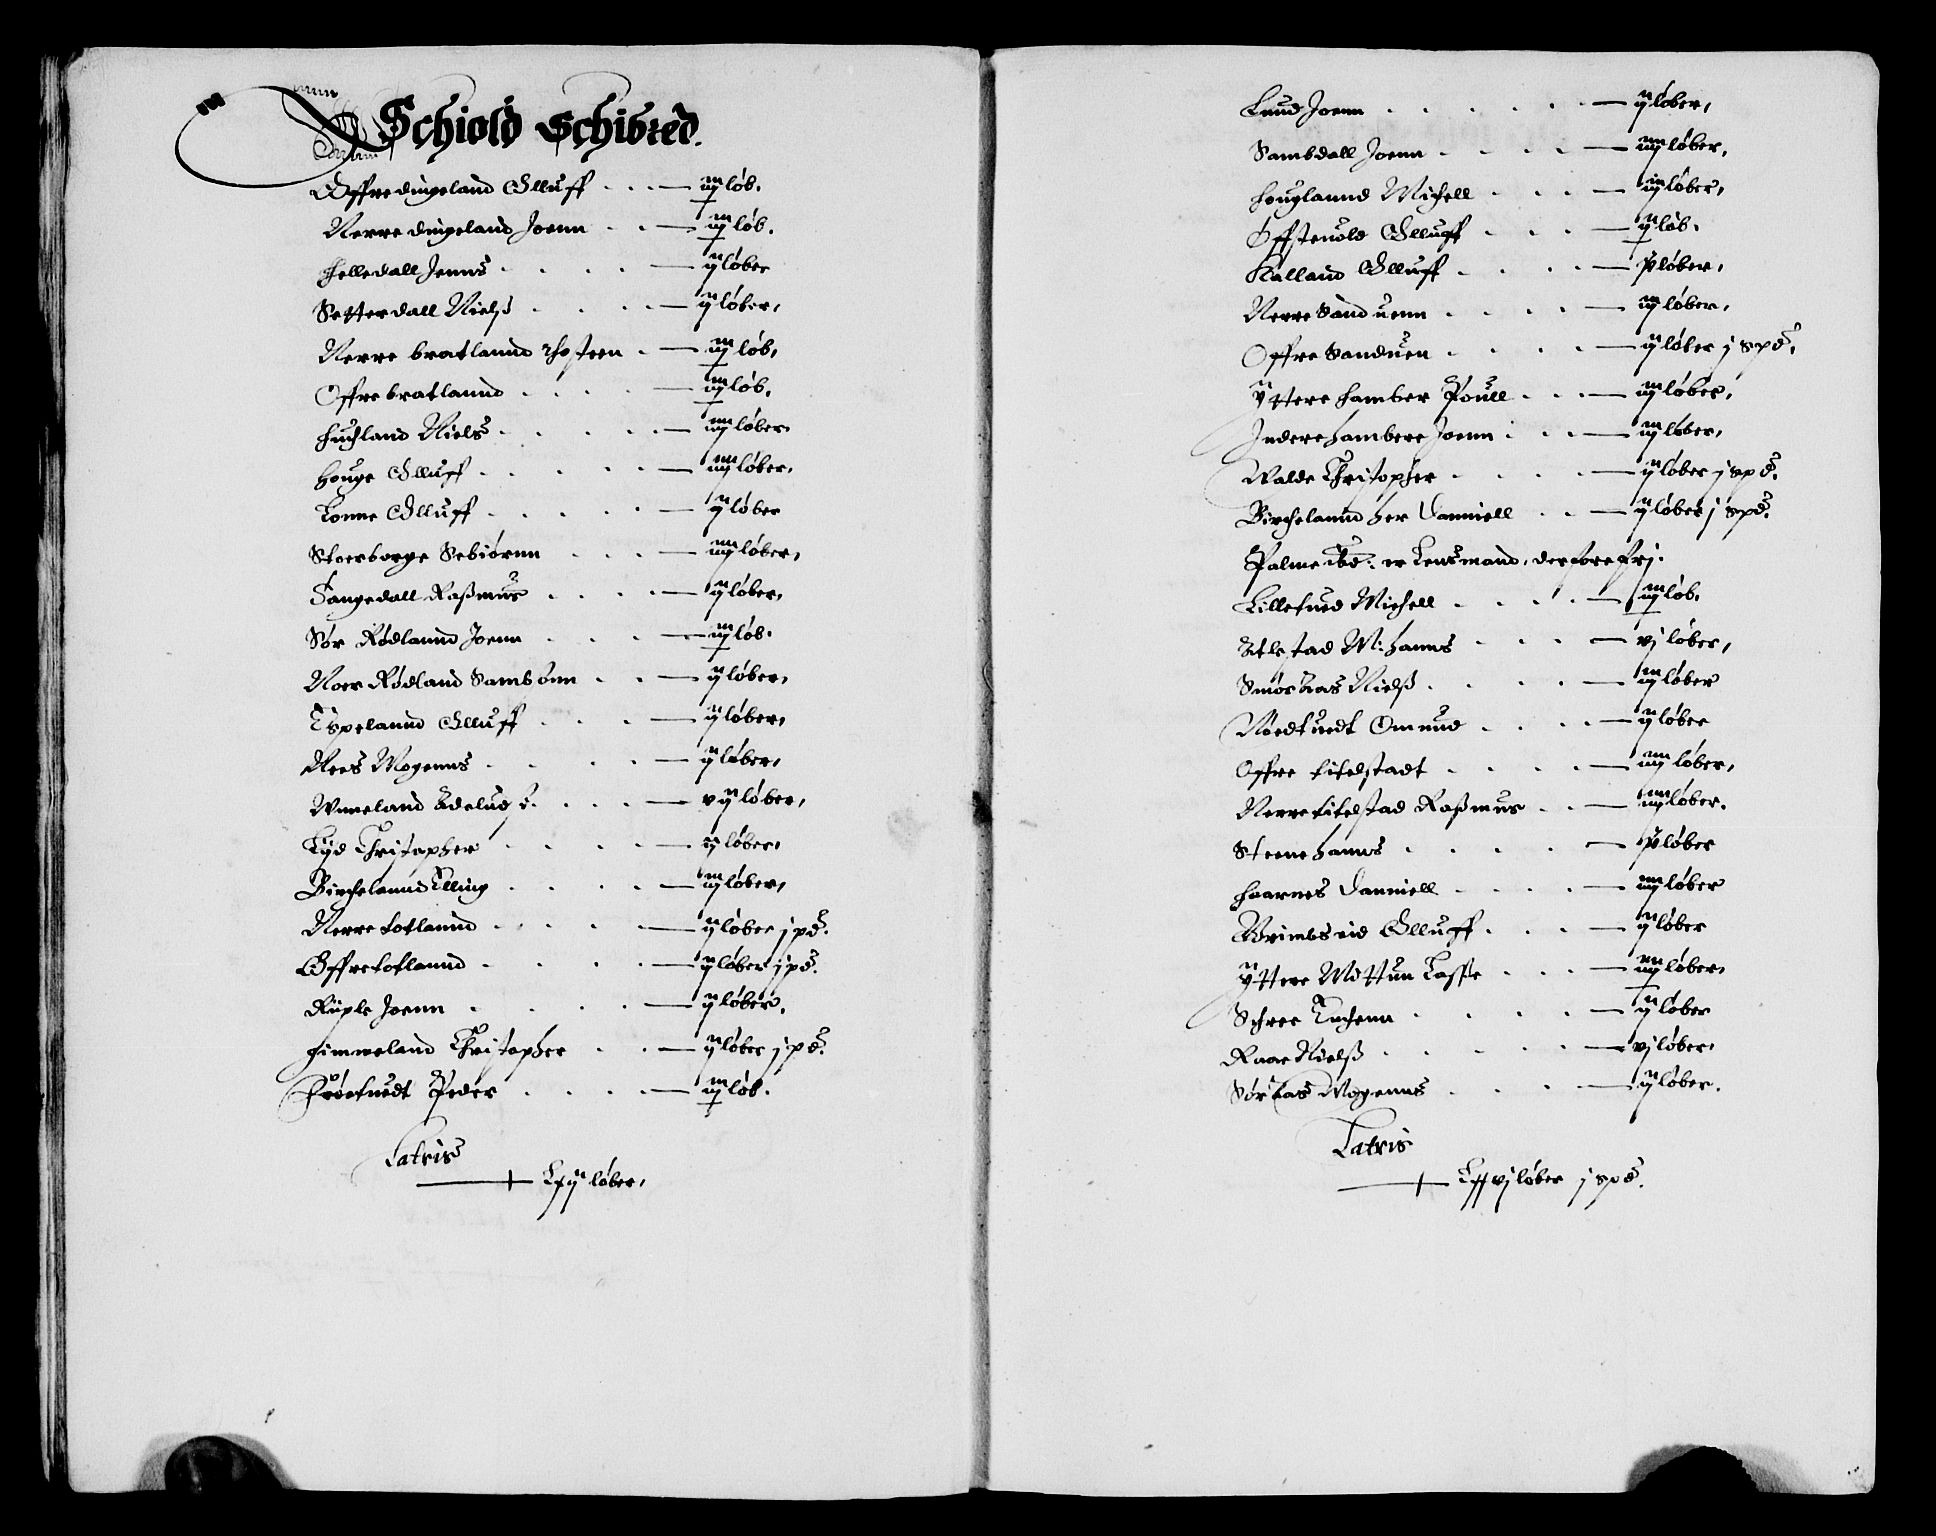 Schiold Schibred.
Offredingeland Olluff . . . — iiij løb.
Nerre dingeland Joenn . . — iiij løb.
Helledall Jenns . . . . — ij løber
Setterdall Nielß . . . . — ij løber,
Nerre bratlannd Thosteen . — iiij løb,
Offre bratlannd . . . — iiij løb.
Huchland Niels . . . . . — iiij løber
Houge Olluff . . . . . — iiij løber,
Lonne Olluff . . . . . — ij løber
Stoerborge Sebiørnn . . . — iiij løber,
Langedall Raßmus . . . . — ij løber,
Sør Rødlannd Joenn . . . — iiij løb.
Noer Rødland Sambsonn . . — ij løber,
Espelannd Olluff . . . — ij løber,
Rees Mogenns . . . . . — ij løber,
Wnneland . . . — vij løber,
Lyd Christopher . . . . — ij løber,
Birchelannd Elling . . . . — iij løber,
Nerre totlannd . . . . — ij løber j pd.
Offre totlannd . . . . — ij løber j pd.
Riiple Joenn . . . . — ij løber,
Himmeland Christopher . . — ij løber j pd.
Frøetuedt Peder . . . . — iij løb.
Lateris
— Lxij løber,
Lund Joenn . . . . . . — ij løber,
Sambdall Joenn . . . . — iiij løber,
Houglannd Michell . . . — iij løber,
Øffsteuold Olluff . . . — ij løb.
Kalland Olluff . . . . — v løber,
Nerre Sanduenn . . . . — iij løber,
Offre Sanduen . . . . — ij løber j spd.
Yttere Hamber Poull . . . — iij løber,
Indere hambere Joenn . . . — iij løber,
Walde Christopher . . . . — ij løber j spd.
Birchelannd her Danniell . . — ij løber j spd.
Palme ibd: er Lensmand, derfore frj.
Lilletued Michell . . . . — iij løb,
Atlestad M: hanns . . . — vj løber,
Smøraas Nielß . . . . — iij løber
Nordtuedt Omund . . . . — ij løber
Offre titelstadt . . . . — iiij løber,
Nerre titelstad Raßmus . . — iiij løber.
Steene hanns . . . . — v løber
Haarnes Danniell . . . . — iiij løber
Grimbseid Olluff . . . — ij løber
Yttere Mittun Lasße . . . — iiij løber,
Schree . . . . — ij løber
Raae Nielß . . . . . — vj løber,
Søraas Mogenns . . . — ij løber.
Lateris
— Lxxvj løber j spd.